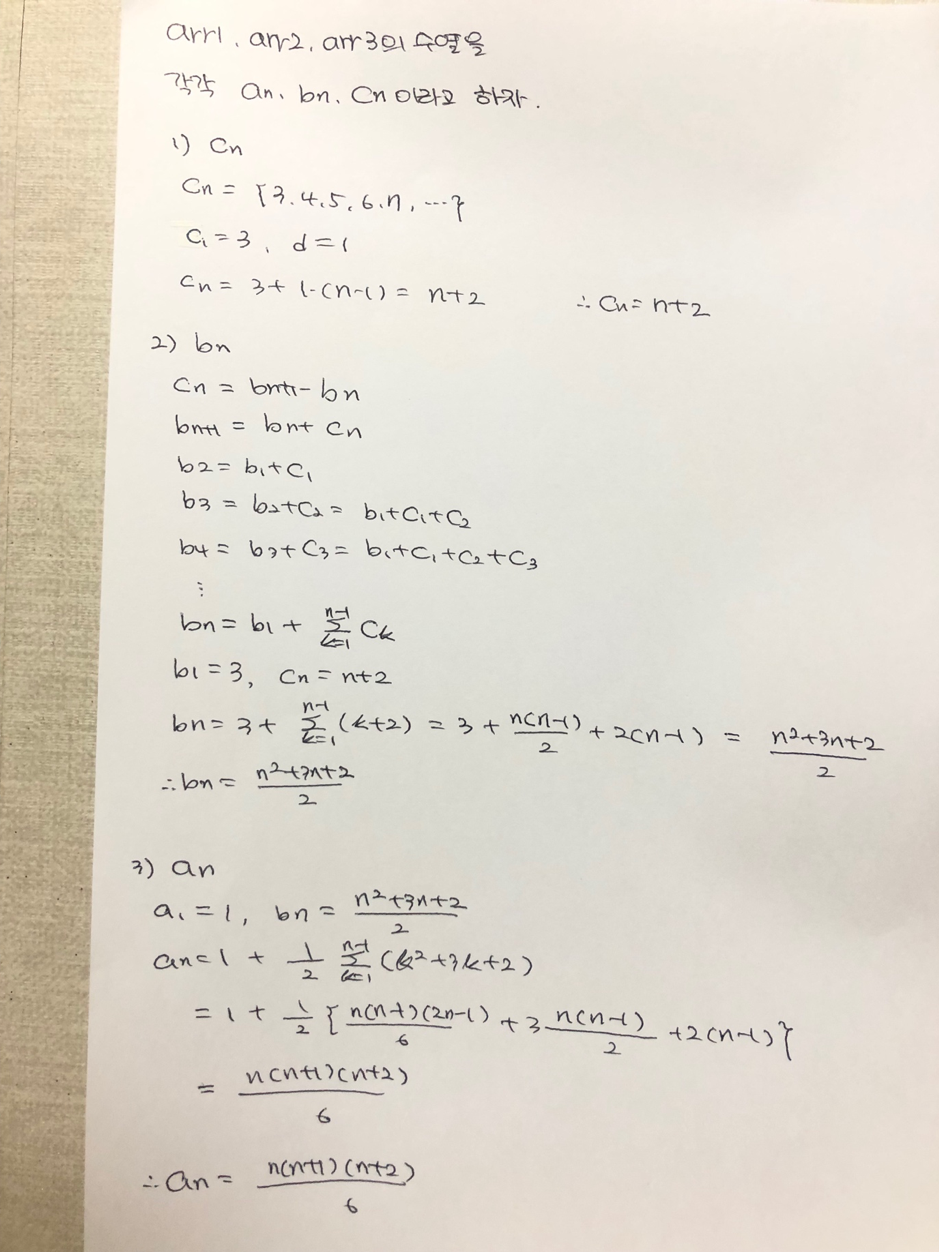 arr1, arr2, arr3의 수열을
각각 an, bn, Cn 이라고 하자.
1) Cn
Cn = {3.4.5.6.7, ...}
C₁ = 3, d = 1
Cn = 3+1·(n-1) = n+2 ∴ Cn = n+2
2) bn
Cn = bn+1 - bn
bn+1 = bn + Cn
b2 = b₁+C₁
b3 = b₂+C₂ = b₁+C₁+C₂
b4 = b₃+C₃ = b₁+C₁+C₂+C₃
⋮
bn = b1 + Σ(k=1, n-1) Ck
b1 = 3, Cn = n+2
bn = 3 + Σ(k=1, n-1) (k+2) = 3 + n(n-1)/2 + 2(n-1) = (n²+3n+2)/2
∴ bn = (n²+3n+2)/2
3) an
a₁ = 1, bn = (n²+3n+2)/2
an = 1 + 1/2 Σ(k=1, n-1) (k²+3k+2)
= 1 + 1/2 { n(n-1)(2n-1)/6 + 3 n(n-1)/2 + 2(n-1) }
= n(n+1)(n+2)/6
∴ an = n(n+1)(n+2)/6